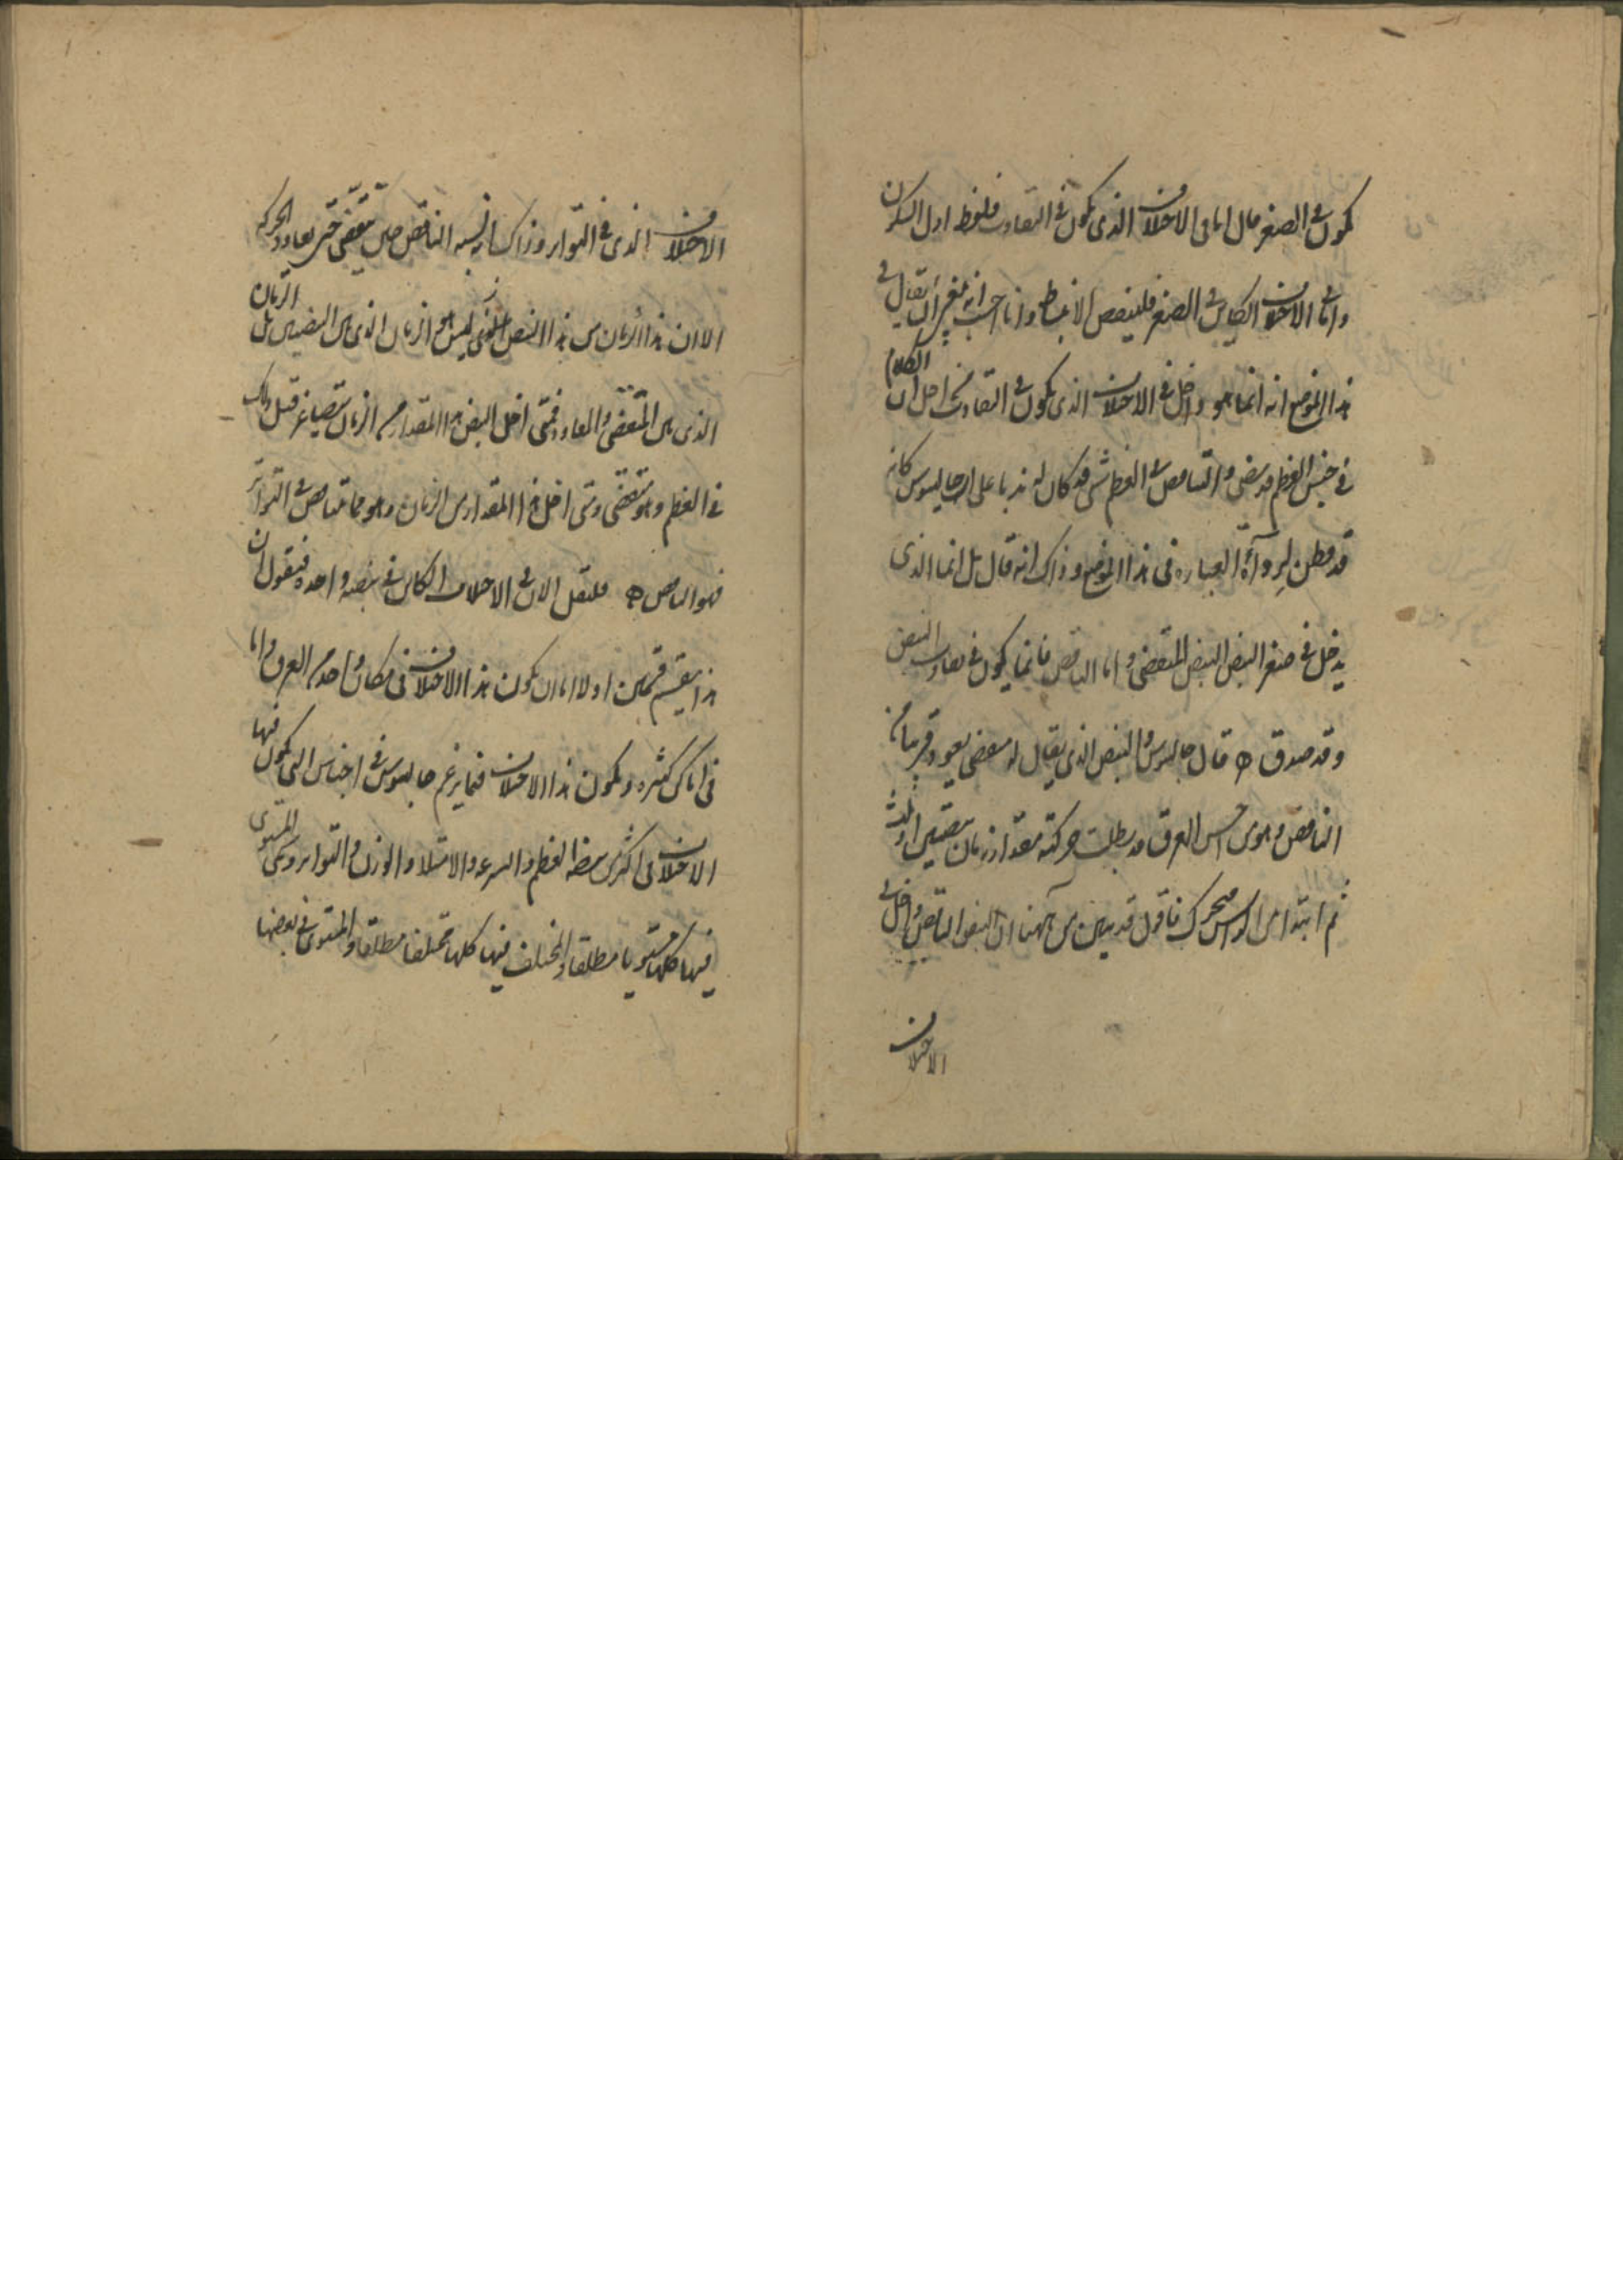 يكون في الصغر قال اما في الاختلاف الذي يكون في التفاوت فلفظ اول السكون
واما في الاختلاف الكاين في الصغر فلينقص الانبساط وانا احسب انه ينبغي ان يقال في
هذا الموضع انه انما هو داخل في الاختلاف الذي يكون في التفاوت من اجل ان الكلام
في جنس العظم قد مضى والتناقص في العظم شي قد كان له ذهبا على ان جالينوس كانه
قد فطن لرداءة العبارة في هذا الموضع وذلك انه قال بل انما الذي
يدخل في صغر النبض النبض المنقضي واما الناقص فانما يكون في تفاوت النبض
وقد صدق ه قال جالينوس والنبض الذي يقال له منقضي يعود قريبا من
الناقص وهو متى احس العرق قد بطلت حركته مقدار زمان نبضتين او ثلث
ثم ابتدا من الراس يتحرك فاقول قد يتبين من ههنا ان النبض الناقص داخل في
الاختلاف
الاختلاف الذي في التواتر وذلك ان نسبة الناقص حين ينقضي حتى يعاود الحركة
الا ان هذا الزمان من هذا النبض الذي ليس هو الزمان الذي بين النبضتين بل الزمان
الذي بين المنقضي والمعاود فمتى اخل النبض هذا المقدار من الزمان بتصاغر قبل ذلك
في العظم وهو منقضي ومتى اخل هذا المقدار من الزمان وهو مما تناقص في التواتر
فهو الناقص ه فلنقل الان في الاختلاف الكاين في نبضة واحدة فنقول ان
هذا ينقسم قسمين اولا اما ان يكون هذا الاختلاف في مكان واحد من العرق واما
في اماكن كثيرة ويكون هذا الاختلاف فيما يزعم جالينوس في اجناس التي يكون فيها
الاختلاف في اكثر من نبضة العظم والسرعة والامتلا والوزن والتواتر ويسمى المستوي
فيها كلها مستويا مطلقا والمختلف فيها كلها مختلفا مطلقا والمستوي في بعضها